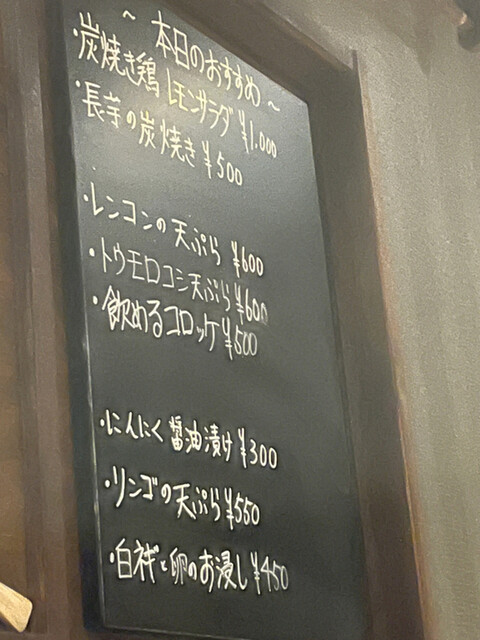 ~ 本日のおすすめ ~
・炭焼き鶏 レモンサラダ ¥1,000
・長芋の炭焼き ¥500
・レンコンの天ぷら ¥600
・トウモロコシ天ぷら ¥600
・飲めるコロッケ ¥500
・にんにく醤油漬け ¥300
・リンゴの天ぷら ¥550
・白ネギと卵のお浸し ¥450